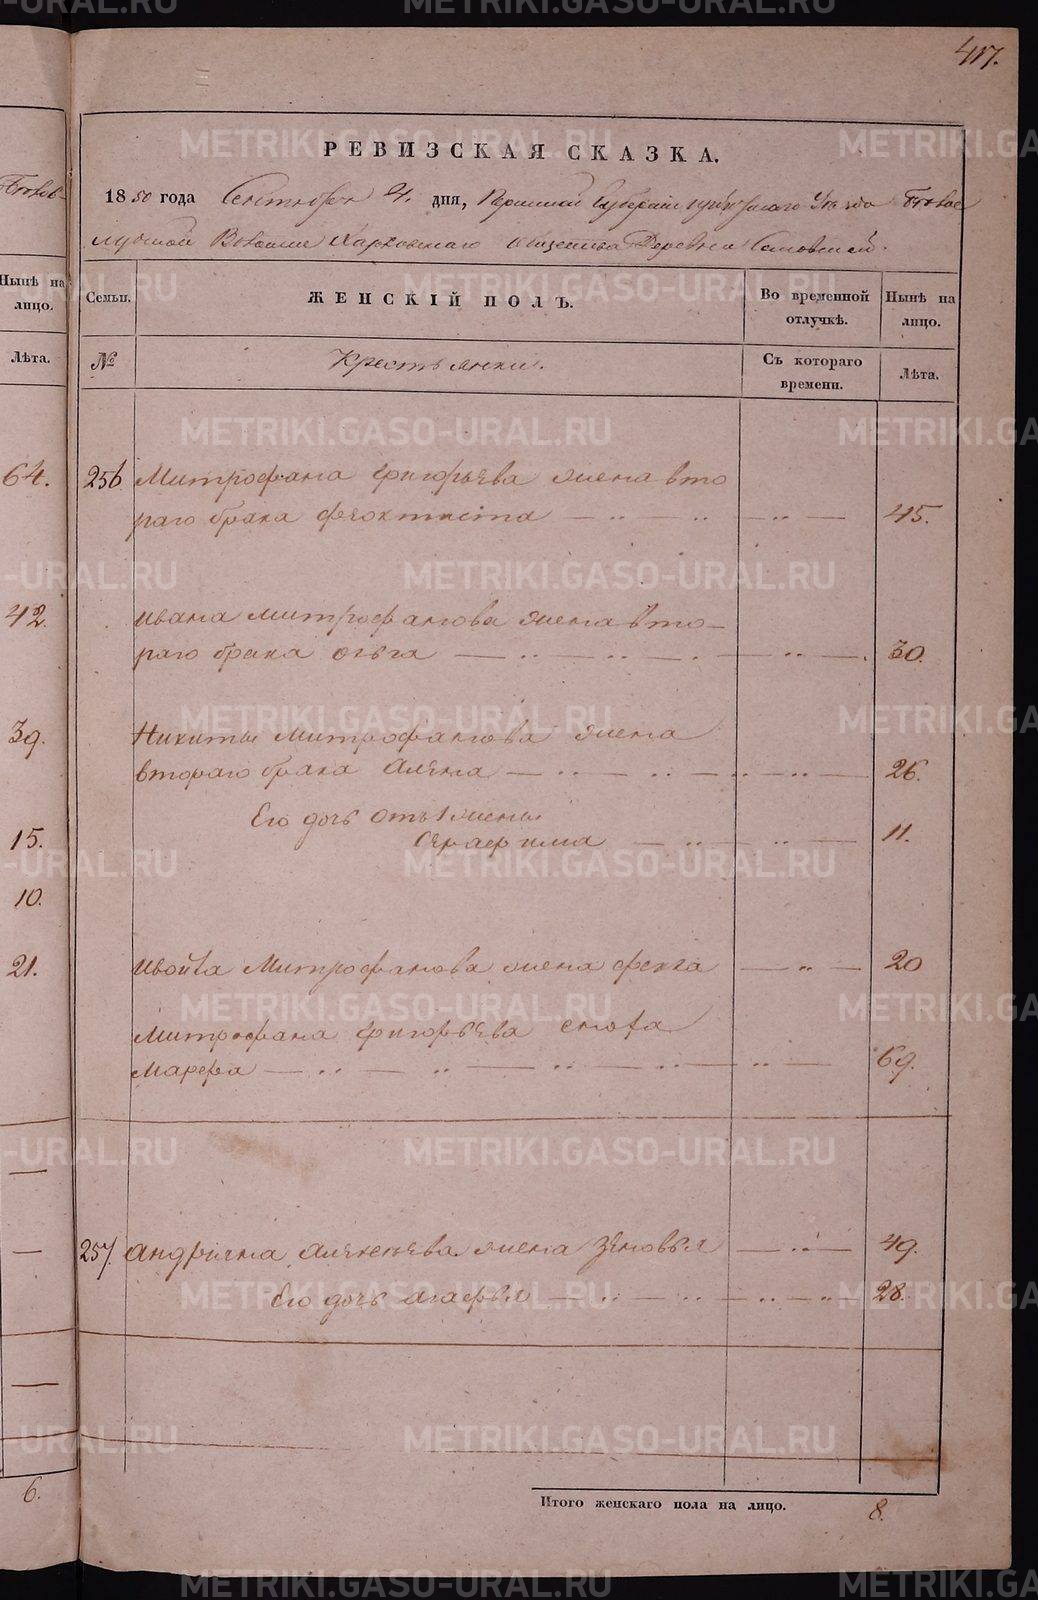 417.
РЕВИЗСКАЯ СКАЗКА.
1850 года Сентября 4. дня, Пермской Губернии Уезда
Волости Харловскаго общества Деревни
Семьи. ЖЕНСКІЙ ПОЛЪ. Во временной отлучкѣ. Нынѣ на лицо.
№ Крестьянки. Съ котораго времени. Лѣта.
256 Митрофана Григорьева жена вто
раго брака Феоктиста 45.
Ивана Митрофанова жена вто-
раго брака Ольга 30.
Никиты Митрофанова жена
втораго брака Алена 26.
Его дочь отъ 1 жены
Серафима 11.
Митрофанова жена Фекла 20
Митрофана Григорьева сноха
Марфа 69.
257. Андриана Алексеева жена Зеновья 49.
Его дочь Агафья 28.
Итого женскаго пола на лицо. 8.
Нынѣ на лицо.
Лѣта.
64.
42.
39.
15.
10.
21.
6.
METRIKI.GASO-URAL.RU